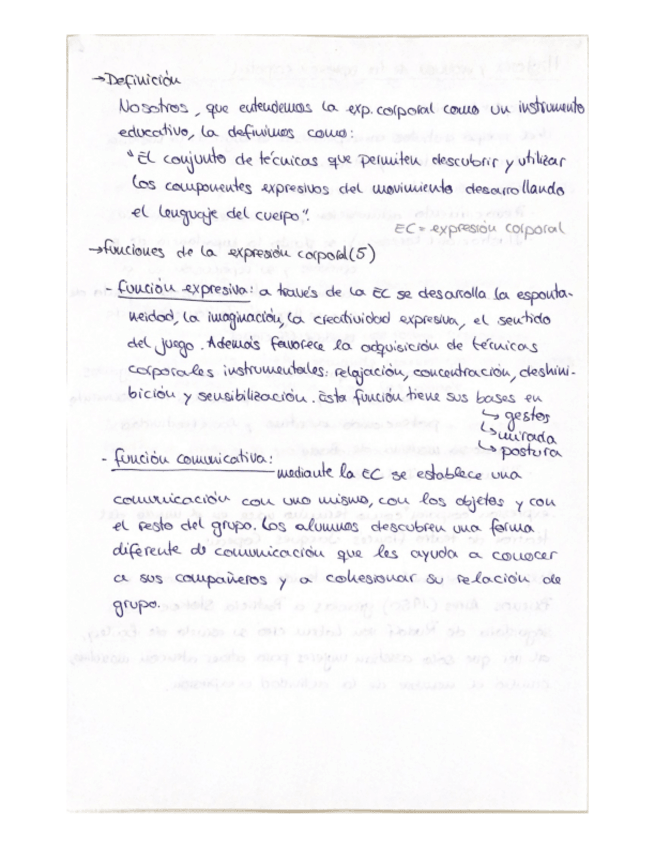 →Definición
Nosotros, que entendemos la exp. corporal como un instrumento
educativo, la definimos como:
"El conjunto de técnicas que permiten descubrir y utilizar
los componentes expresivos del movimiento desarrollando
el lenguaje del cuerpo".
EC = expresión corporal
→funciones de la expresión corporal (5)
- función expresiva: a través de la EC se desarrolla la esponta-
neidad, la imaginación, la creatividad expresiva, el sentido
del juego. Además favorece la adquisición de técnicas
corporales instrumentales: relajación, concentración, deshini-
bición y sensibilización. Esta función tiene sus bases en
↳ gestos
↳ mirada
↳ postura
- función comunicativa:
mediante la EC se establece una
comunicación con uno mismo, con los objetos y con
el resto del grupo. Los alumnos descubren una forma
diferente de comunicación que les ayuda a conocer
a sus compañeros y a cohesionar su relación de
grupo.